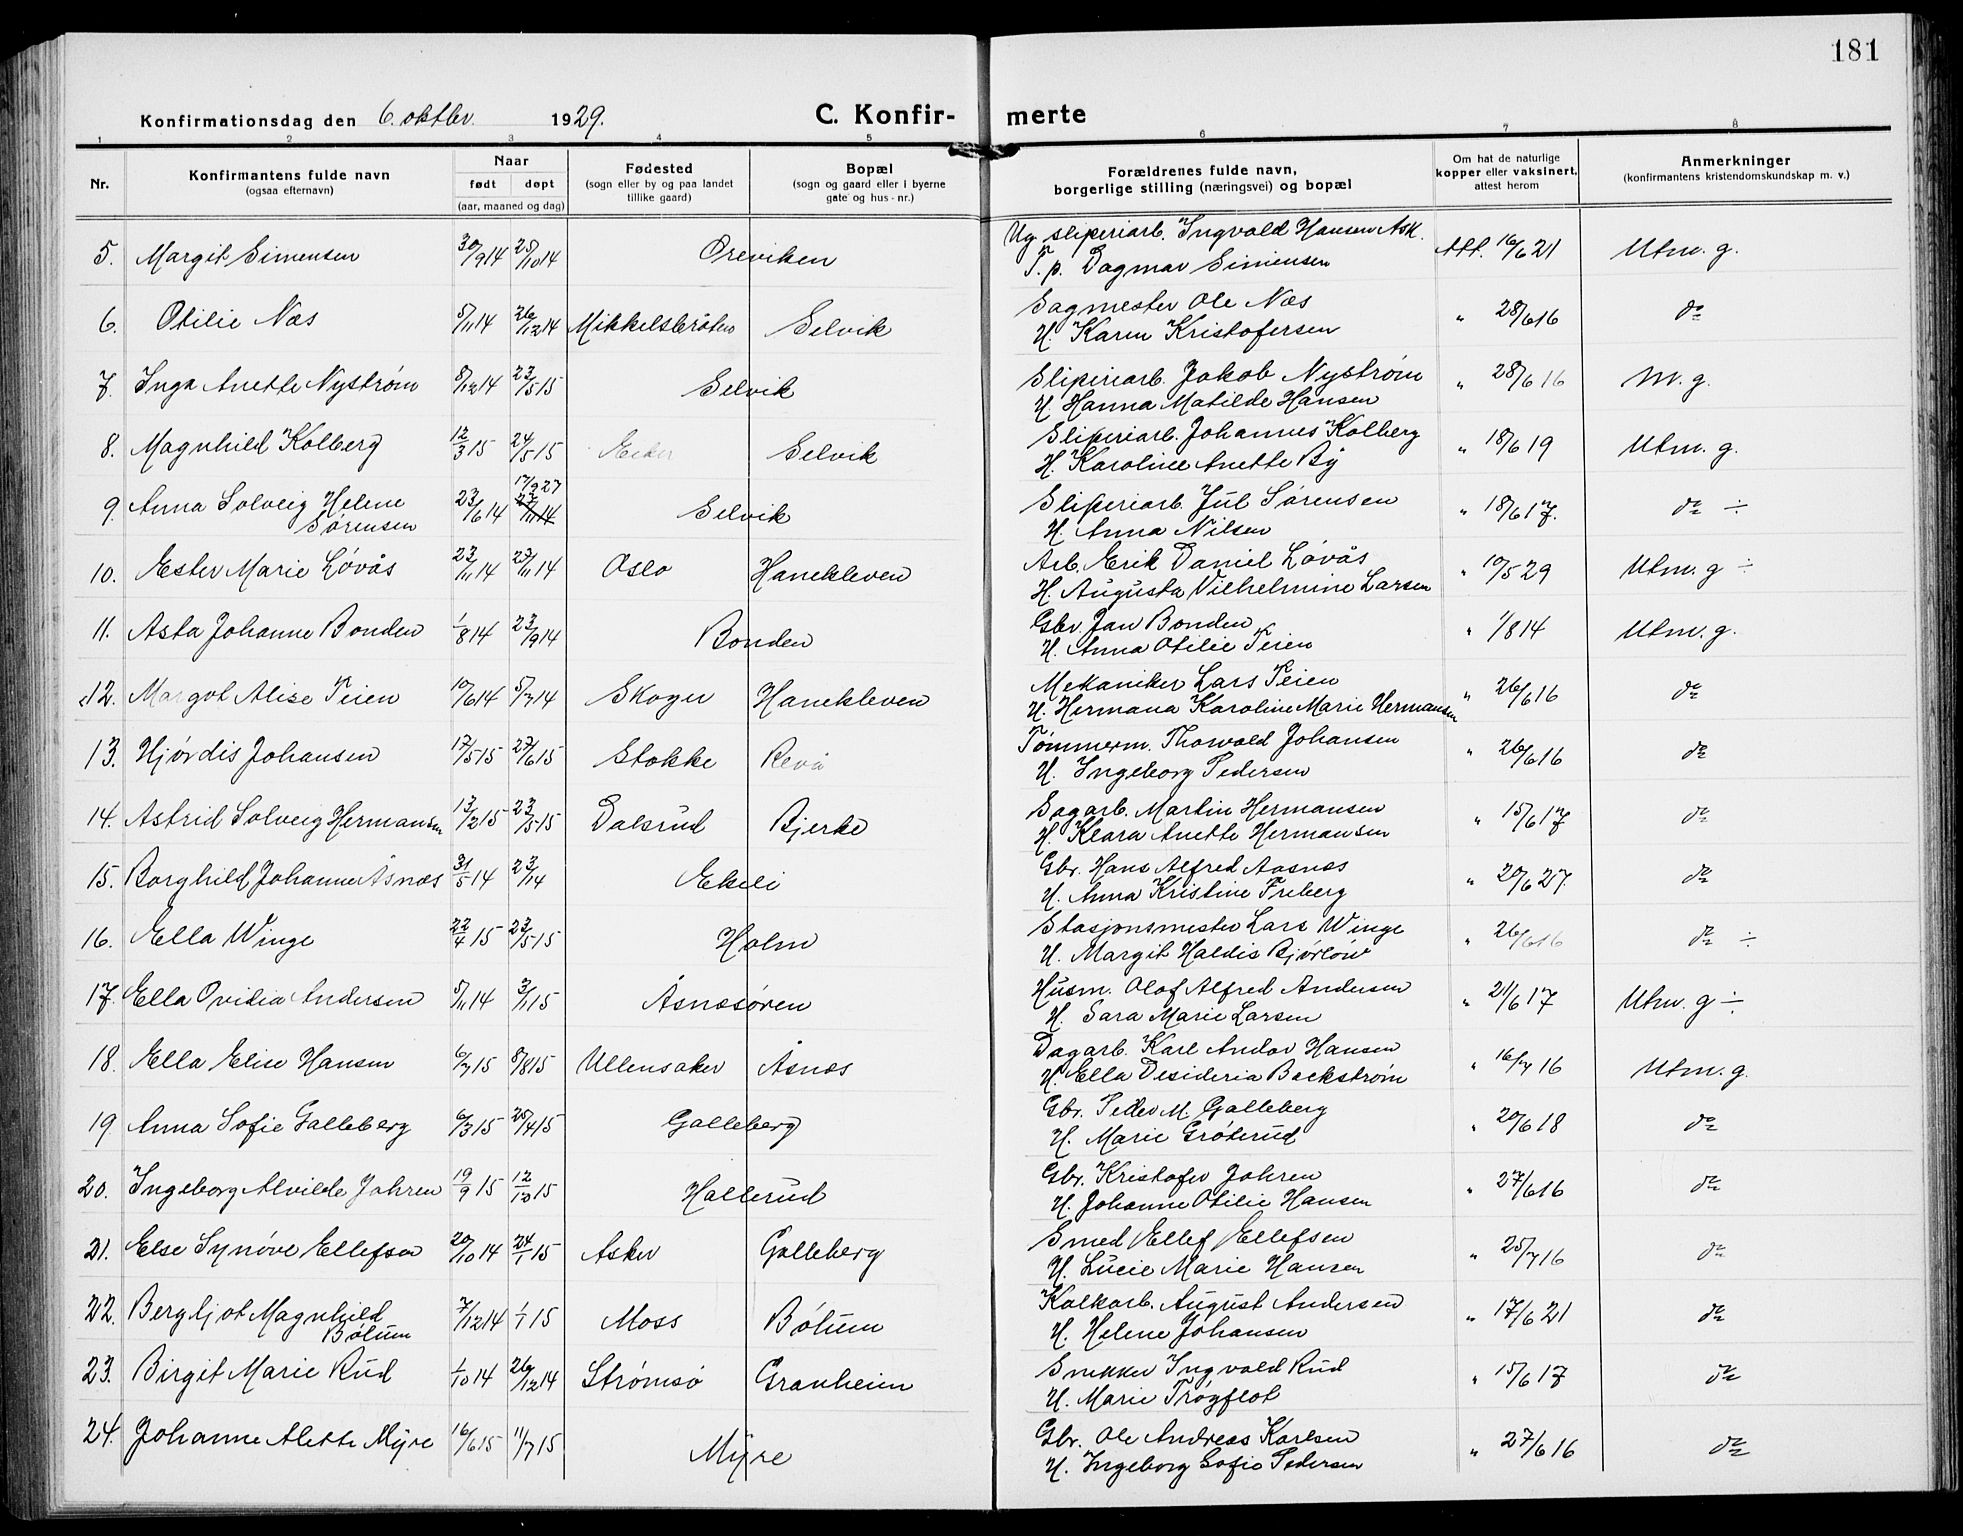 181
Konfirmationsdag den 6. oktbr. 1929.
C. Konfir- merte
1 2 3 4 5 6 7 8
Nr. Konfirmantens fulde navn (ogsaa efternavn) Naar født døpt (aar, maaned og dag) Fødested (sogn eller by og paa landet tillike gaard) Bopæl (sogn og gaard eller i byerne gate og hus-nr.) Forældrenes fulde navn, borgerlige stilling (næringsvei) og bopæl Om hat de naturlige kopper eller vaksinert, attest herom Anmerkninger (konfirmantens kristendomskundskap m. v.)
5. Margit Simensen 30/9 14 25/10 14 Oreviken Ug. sliperiarb. Ingvald Hansen Ask. Att. 16/6 21 Utm. g.
T. p. Dagmar Simensen
6. Otilie Næs 5/11 14 26/12 14 Mikkelsbråten Selvik Sagmester Ole Næs " 28/6 16 do
H. Karen Kristofersen
7. Inga Anette Nystrøm 8/12 14 23/5 15 Selvik Sliperiarb. Jakob Nystrøm " 28/6 16 M. g.
H. Hanna Matilde Hansen
8. Magnhild Kolberg 12/3 15 24/5 15 Eiker Selvik Sliperiarb. Johannes Kolberg " 18/6 19 Utm. g.
H. Karoline Anette By
9. Anna Solveig Helene Sørensen 23/6 14 17/9 27 27/11 14 Selvik Sliperiarb. Jul Sørensen " 18/6 17. do ÷
H. Anna Nilsen
10. Ester Marie Løvås 23/11 14 27/11 14 Oslo Hanekleven Arb. Erik Daniel Løvås " 10/5 29 Utm. g ÷
H. Augusta Vilhelmine Larsen
11. Asta Johanne Bonden 1/8 14 23/9 14 Bonden Gbr Jan Bonden " 1/8 14 Utm. g.
H. Anna Otilie Teien
12. Margot Alise Teien 10/6 14 5/7 14 Skoger Hanekleven Mekaniker Lars Teien " 26/6 16 do
H. Hermana Karoline Marie Hermansen
13. Hjørdis Johansen 17/5 15 27/6 15 Stokke Revå Tømmerm. Thorvald Johansen " 26/6 16 do
H. Ingeborg Pedersen
14. Astrid Solveig Hermansen 13/2 15 23/5 15 Dalsrud Bjerke Sagarb. Martin Hermansen " 15/6 17 do
H. Klara Anette Hermansen
15. Borghild Johanne Åsnæs 31/5 14 23/ 14 Ekeli Gbr. Hans Alfred Aasnæs " 20/6 27. do
H. Anna Kristine Friberg
16. Ella Winge 22/4 15 23/5 15 Holm Stasjonsmester Lars Winge " 26/6 16 do ÷
H. Margit Haldis Bjørlow
17. Ella Ovidia Andersen 5/11 14 3/1 15 Åsnæsøren Husm. Olaf Alfred Andersen " 21/6 17 Utm. g ÷
H. Sara Marie Larsen
18. Ella Elise Hansen 6/7 15 8/8 15 Ullensaker Åsnæs Dagarb. Karl Andor Hansen " 16/7 16 Utm. g.
H. Ella Desideria Backstrøm
19 Anna Sofie Galleberg 6/3 15 25/4 15 Galleberg Gbr. Peder M. Galleberg " 20/6 18 do
H. Marie Grøterud
20. Ingeborg Alvilde Jahren 19/9 15 12/10 15 Hallerud Gbr. Kristofer Jahren " 27/6 16 do
H. Johanne Otilie Hansen
21. Else Synøve Ellefsen 20/10 14 24/1 15 Asker Galleberg Smed Ellef Ellefsen " 25/7 16 do
H. Lucie Marie Hansen
22. Bergljot Magnhild Bølum 7/12 14 1/1 15 Moss Bølum Kalkarb. August Andersen " 17/6 21 do
H. Helene Johansen
23. Birgit Marie Rud 1/10 14 26/12 14 Strømsø Granheim Snekker Ingvald Rud " 15/6 17 do
H. Marie Trøgflot
24. Johanne Alette Myre 16/6 15 11/7 15 Myre Gbr. Ole Andreas Karlsen " 27/6 16 do
H. Ingeborg Sofie Pedersen